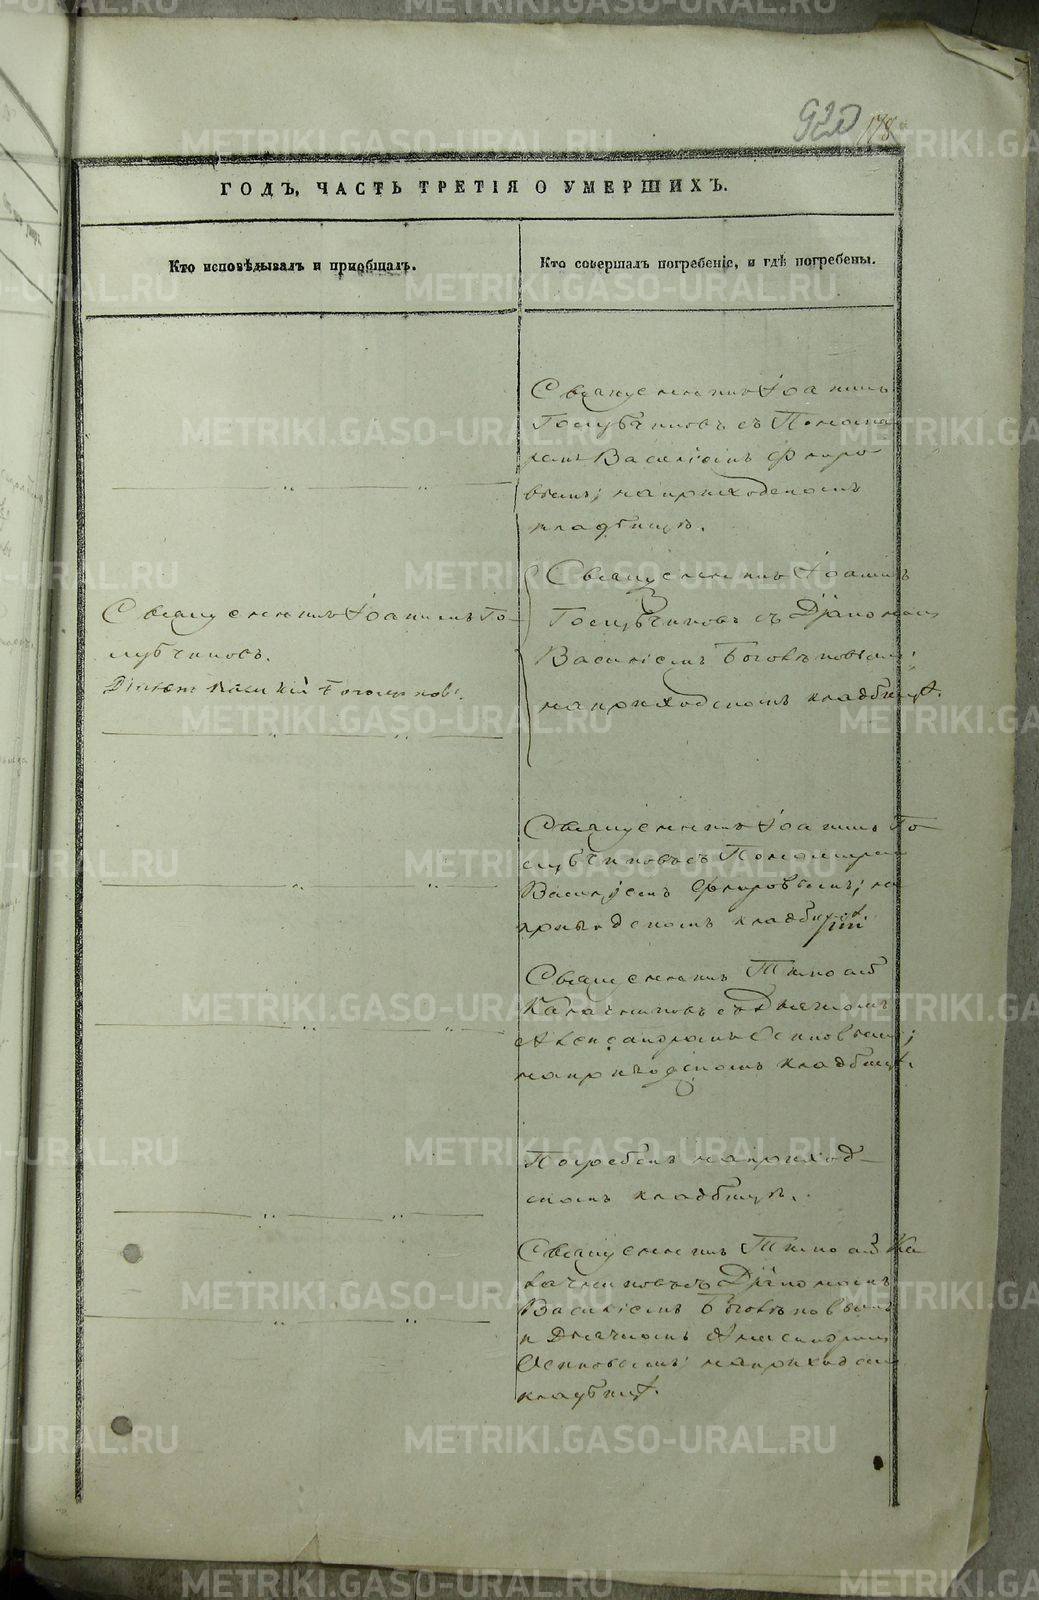 920 178
ГОДЪ, ЧАСТЬ ТРЕТІЯ О УМЕРШИХЪ.
Кто исповѣдывалъ и пріобщалъ.
Кто совершалъ погребеніе, и гдѣ погребены.
Священникъ Іоаннъ
Голубчиковъ съ Понома
ремъ Василіемъ
вымъ; на приходскомъ
кладбищѣ.
Священникъ Іоаннъ Го-
лубчиковъ.
Діаконъ Василій
Священникъ Іоаннъ
Голубчиковъ съ Діакономъ
Василіемъ
на приходскомъ кладбищѣ.
Священникъ Іоаннъ Го-
лубчиковъ съ Пономаремъ
Василіемъ на
приходскомъ кладбищѣ.
Священникъ Тимоѳей
Калачниковъ съ Дьячкомъ
Александромъ Осиповымъ;
на приходскомъ кладбищѣ.
Погребенъ на приход-
скомъ кладбищѣ.
Священникъ Тимоѳей Ка
лачниковъ съ Діакономъ
Василіемъ
и Дьячкомъ Александромъ
Осиповымъ; на приходском
кладбищѣ.
METRIKI.GASO-URAL.RU